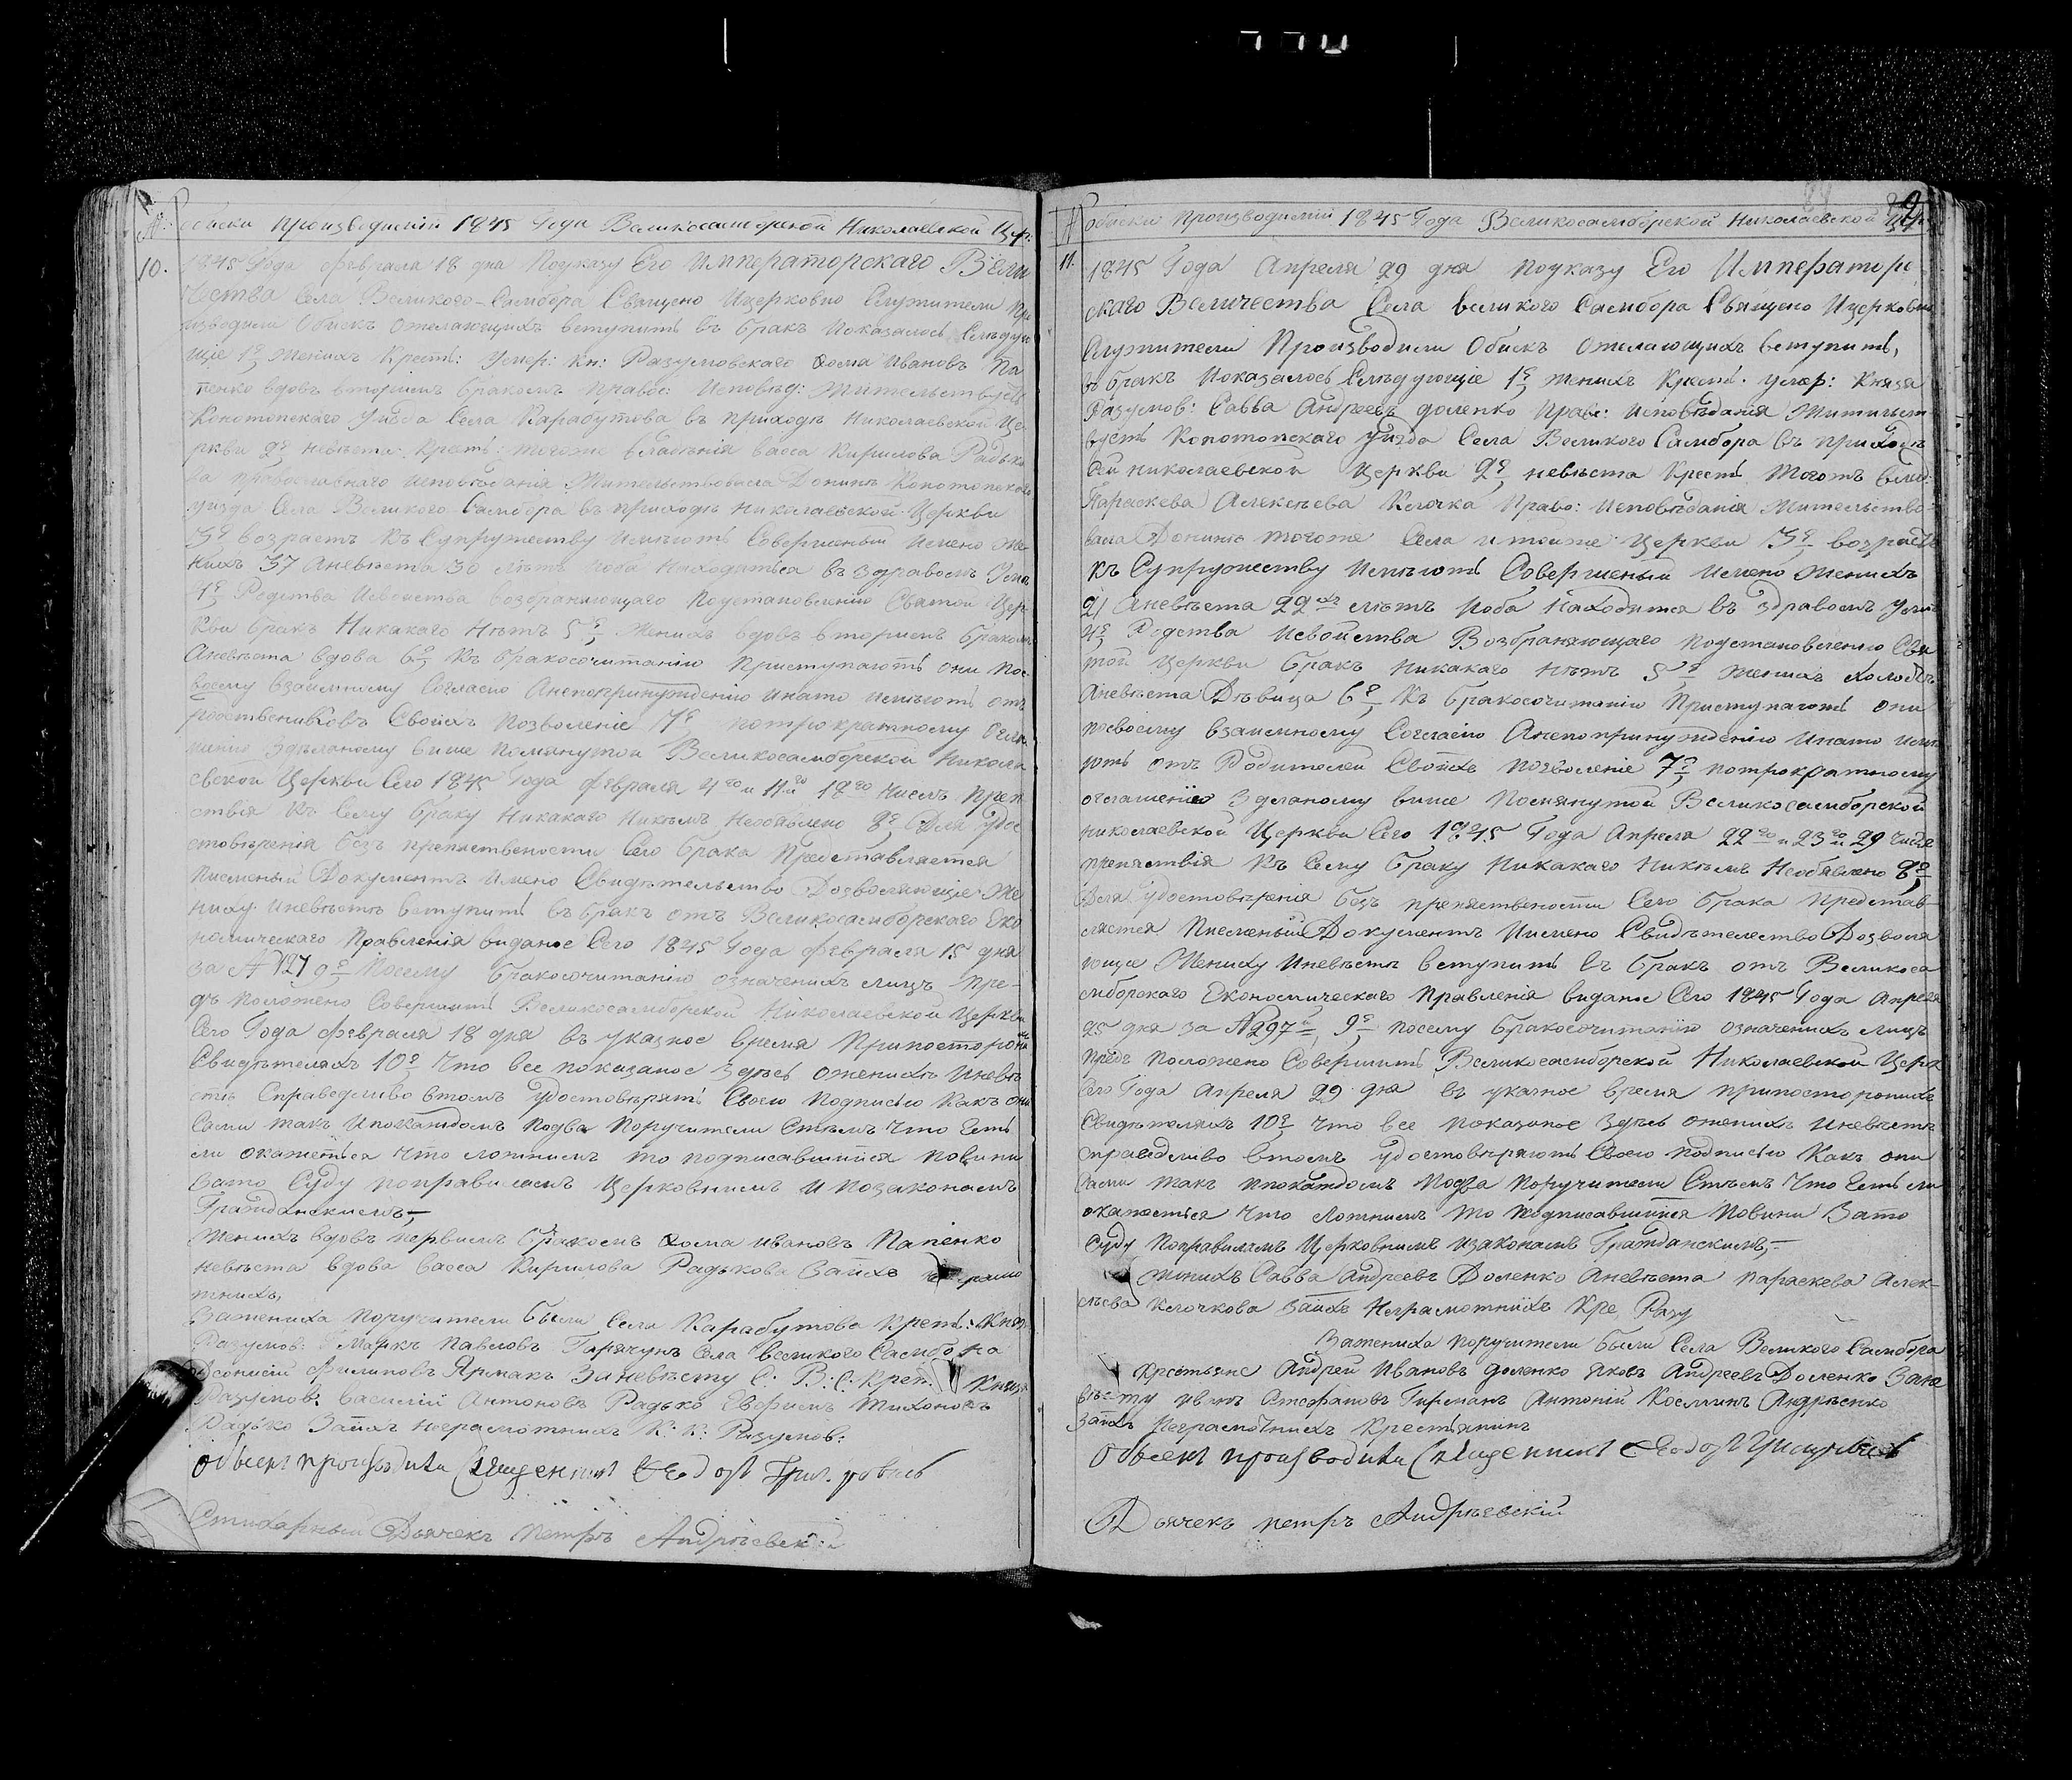 № обиски Производимій 1845 Года Великосамборской Николаевской Цер:
10. 1845 Года Февраля 18 дня Поуказу Его Императорского Вели
чества Села Великого-Самбора Священо Ицерковно Служители Пр
изводили Обискъ ожелающихъ вступить въ бракъ Иоказалось Следую
щіе 1е женихъ Крестъ: Умер: Кн: Разумовскаго Фома Ивановъ Па
пенко вдовъ вторимъ бракомъ Правос: Исповѣд: Жительствуетъ
Конотопскаго Уизда Села Карабутова въ приходѣ Николаевской Це
ркви 2е невѣста Крестъ: тогоже владѣнія Васса Кирилова Радько
ва православнаго исповѣданія Жительствовала Донинѣ Конотопского
уизда Села Великого-Самбора въ приходѣ николаевской Церкви
3е возрастъ Къ Супружеству Имѣютъ Совершеный Имено же
нихъ 37 Аневѣста 30 лѣтъ Иоба Находятся въ здравомъ Уми
4е Родства Исвойства возбраняющаго Поустановленію Святой Цер
кви бракъ Никакаго Нѣтъ 5е Женихъ вдовъ вторимъ бракомъ
Аневѣста вдова 6е Къ бракосочитанію Приступаютъ они Пос
воему взаимному Согласію Анепопринужденію Инато Имѣютъ отъ
родствениковъ Своихъ Позволеніе 7е потрократному Огла
шенію Здѣланому више Помянутой Великосамборской Никола
евской Церкви Сего 1845 Года Февраля 4го и 11й 18го Числъ Преп
ствія Къ Сему браку Никакаго Никѣмъ Необявлено 8е Для Удос
стовѣренія безъ препяствености Сего брака Представляется
Писменый Документъ Имено Свидѣтельство Дозволяющіе Же
ниху Иневѣстѣ вступить въ бракъ отъ Великосамборскаго Еко
номическаго Правленія виданое Сего 1845 Года Февраля 15 дня
за № 127 9е Посему бракосочитанію означенихъ лицъ Пре-
дъ Положено Совершить Великосамборской Николаевской Церкви
Сего Года Февраля 18 дня въ указное время Припосторонихъ
Свидѣтеляхъ 10е Что все показаное Здѣсь оженихѣ Иневѣ
стѣ Справедливо втомъ Удостовѣрятъ Своею Подписью Какъ они
Сами такъ Ипокаждомъ Подва Поручители Стѣмъ Что Есть
ли окажется Что ложнимъ то подписавшійся повини
Зато Суду поправиламъ Церковнимъ И Позаконамъ
Гражданскимъ,
Женихъ вдовъ первимъ бракомъ Фома Ивановъ Папенко
невѣста вдова Васса Кирилова Радькова Заихъ неграмо
тнихъ,
Зажениха Поручители были Села Карабутова Крест: Княз:
Разумов: Маркъ Павловъ Гарячунъ Села великого Самбора
Филиповъ Ярмакъ Заневѣсту С: В: С: Крест: Князя
Разумов: Василій Антоновъ Радько Евфимъ Тихоновъ
Радько Заихъ неграмотнихъ К: К: Разумов:
Обыскъ производили Священникъ Ѳеодоръ
Стихарный Дьячекъ Петръ Андріевскій
№ обиски Производимій 1845 Года Великосамборской Николаевской Цер:
11. 1845 Года Апреля 29 дня Поуказу Его Император
скаго Величества Села великого Самбора Священо Ицерковно
Служители Производили Обискъ Ожелающихъ вступить,
въ бракъ Иоказалось Слѣдующіе 1е женихъ Крестъ. Умер: Князя
Разумов: Савва Андреевъ Доленко Прав: Исповѣданія Жительст
вуетъ Конотопскаго Уизда Села Великого Самбора въ приходѣ
сей николаевской Церкви 2е невѣста Крестъ Тогожъ влад:
Параскева Алексѣева Клочка Право: Исповѣданія Жительство
вала Донинѣ тогоже Села итойже Церкви 3е возрастъ
къ Супружеству Имѣютъ Совершеный Имено Женихъ
21 Аневѣста 22хъ лѣтъ Иоба Находится въ здравомъ Умѣ
4е Родства Исвойства Возбраняющаго Поустановленію Свя
той Церкви бракъ Никакаго Нѣтъ 5е Женихъ холостъ
Аневѣста Дѣвица 6е Къ бракосочитанію Приступаютъ они
посвоему взаимному Согласію Анепопринужденію Инато имѣ
ютъ отъ Родителей Своихъ Позволеніе 7е потрократному
оглашенію Здѣланому више Помянутой Великосамборской
николаевской Церкви Сего 1845 Года Апреля 22го и 23го и 29 Числъ
препяствія Къ Сему браку Никакаго Никѣмъ Необявлено 8е
Для удостовѣренія безъ препяствености Сего брака Представ-
ляется Писменый Документъ Имено Свидѣтелество Дозволя
ющіе Жениху Иневѣстѣ вступить въ бракъ отъ Великоса
мборскаго Економическаго Правленія виданое Сего 1845 Года Апреля
25 дня за № 297й 9е посему бракосочитанію означенихъ лицъ
Предъ Положено Совершить Великосамборской Николаевской Церк
Сего Года Апреля 29 дня въ указное время припосторонихъ
Свидѣтеляхъ 10е Что все Показаное Здѣсь оженихѣ Иневѣстѣ
справедливо втомъ удостовѣряютъ Своею подписью Какъ они
сами такъ ипокаждомъ Подва Поручители Стѣмъ Что Есть ли
окажется Что Ложнимъ то Подписавшійся Повини Зато
Суду Поправиламъ Церковнимъ изаконамъ Гражданскимъ,-
Женихъ Савва Андреевъ Доленко Аневѣста Параскева Алек-
сѣева Клочкова Заихъ Неграмотнихъ Кре, Разу
Зажениха Поручители были Села Великого Самбора
Крестьяне Андрей Ивановъ Доленко Яковъ Андреевъ Доленко Зане
вѣсту Иванъ Стефановъ Антоній Косминъ Андрѣенко
Заихъ Неграмотнихъ Крестьянинъ
Обыскъ производили Священникъ Ѳеодоръ
Дьячекъ Петръ Андріевскій